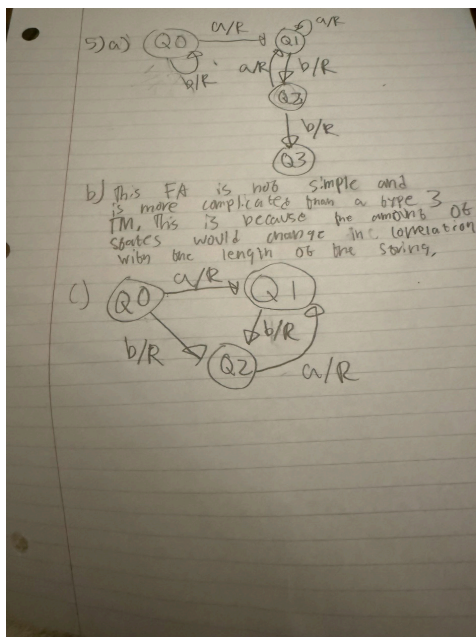 5)a) Q0 a/R Q1 a/R
b/R a/R b/R
Q2
b/R
Q3
b) This FA is not simple and
is more complicated than a type 3
TM. This is because the amount of
states would change in correlation
with the length of the string.
c) Q0 a/R Q1
b/R b/R
Q2 a/R